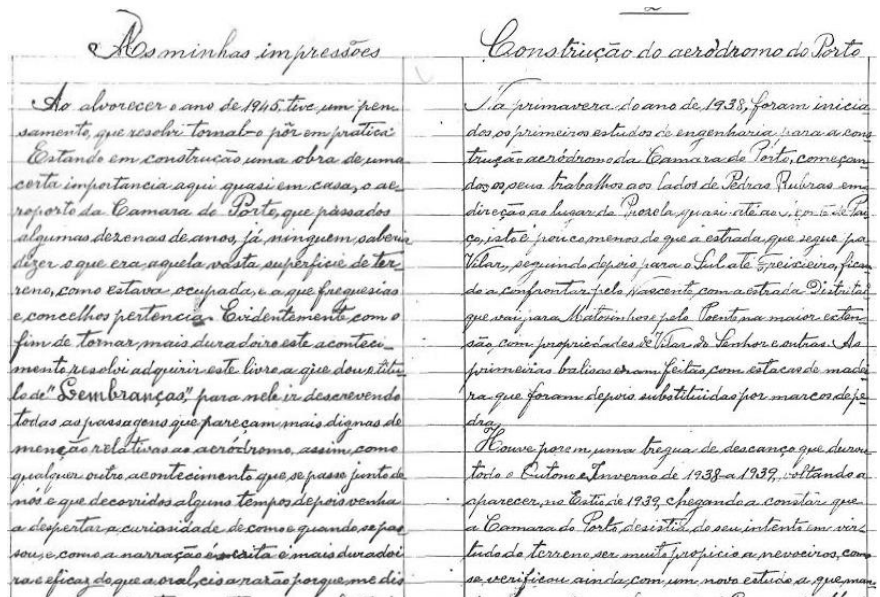 As minhas impressões
Ao alvorecer o ano de 1945, tive um pen-
samento, que resolvi tornal-o pôr em pratica
Estando em construcção uma obra de uma
certa importancia aqui quasi em casa, o ae-
roporto da Camara do Porto, que passados
algumas dezenas de anos, já ninguem saberia
dizer o que era, aquela vasta superficie de ter-
reno, como estava ocupada, e a que freguesias
e concelhos pertencia. Evidentemente com o
fim de tornar, mais duradoiro este aconteci-
mento, resolvi adquirir este livro, a que dou o titu-
lo de "Lembranças," para nele ir descrevendo
todas as passagens que pareçam mais dignas de
menção relativas ao aeródromo, assim, como
qualquer outro acontecimento que se passe junto de
nós e que decorridos alguns tempos depois venha
a despertar a curiosidade de como e quando se pas-
sou, e como a narração escrita é mais duradoi
ra e eficaz do que a oral, eis a razão porque me dis
Construcção do aeródromo do Porto
Na primavera do ano de 1938, foram inicia
dos, os primeiros estudos de engenharia para a cons
trução aeródromo da Camara do Porto, começan-
do, os seus trabalhos aos lados de Pedras Rubras em
direção ao lugar da quasi até ao
ço, isto é pouco menos do que a estrada, que segue pa
Vilar, seguindo depois para o Sul até Freixieiro, fican
do a confrontar pelo Nascente, com a estrada Distrital
que vai para Matosinhos e pelo Poente na maior exten-
são, com propriedades de Vilar do Senhor e outras. As
primeiras balisas eram feitas, com estacas de madei
ra que foram depois substituidas por marcos de pe-
dra.
Houve porem, uma tregua de descanço que durou
todo o Outono e Inverno de 1938 a 1939, voltando a
aparecer, no Estio de 1939, chegando a constar que
a Camara do Porto, desistia do seu intento em vir-
tude do terreno ser muito propicio a nevoeiros, como
se verificou ainda, com um novo estudo a que man